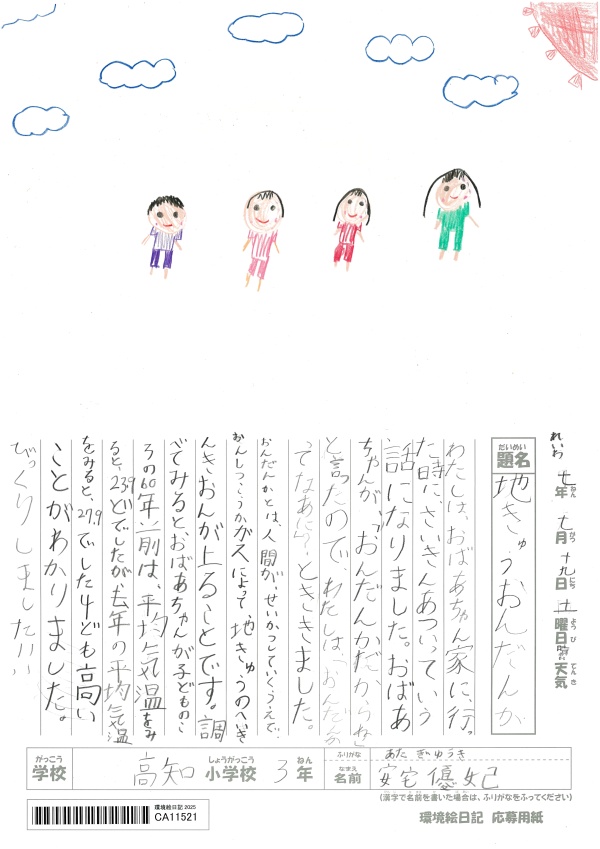 れいわ 七年 七月 十九日 土曜日 天気
ねん がつ にち ようび てんき
だいめい
題名 地きゅうおんだんか
わたしは、おばあちゃん家に、行っ
た時に、さいきんあついっていう
話になりました。おばあ
ちゃんが、「おんだんかだからね」
と言ったので、わたしは、「おんだんか
ってなあに？」とききました。
おんだんかとは、人間が、せいかつしていくうえで、
おんしつこうかガスによって、地きゅうのへいき
んきおんが上ることです。調
べてみるとおばあちゃんが子どものこ
ろの60年前は、平均気温をみ
ると、23.9どでしたが、去年の平均気温
をみると、27.9でした4ども高い
ことがわかりました。
びっくりしました!!!
がっこう
学校 高知 小学校 3年
しょうがっこう ねん
ふりがな
なまえ
名前 安宅優妃
(漢字で名前を書いた場合は、ふりがなをふってください)
環境絵日記 2025
CA11521
環境絵日記 応募用紙